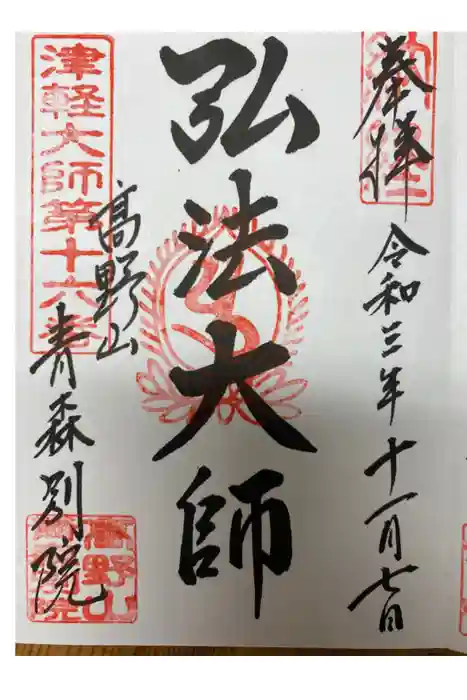 奉拝
令和三年十一月七日
弘法大師
高野山
青森別院
津軽大師第十六番